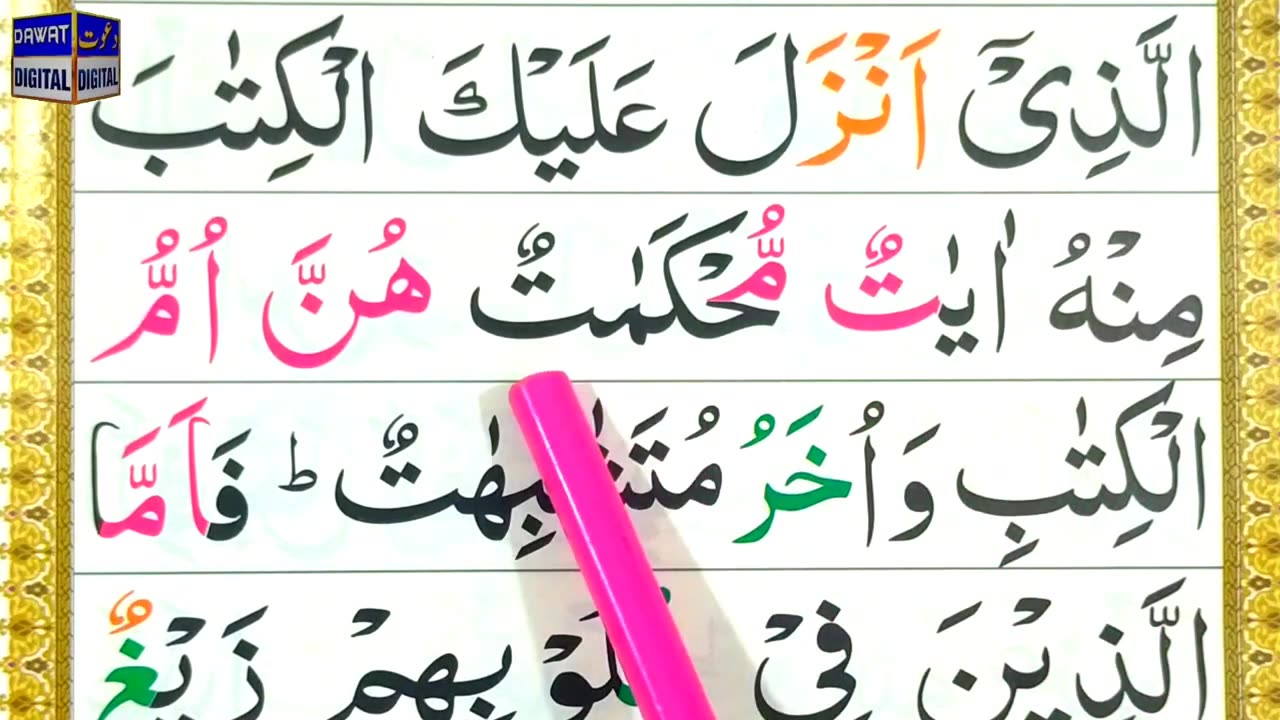 DAWAT دعوت
DIGITAL DIGITAL
الَّذِیْۤ اَنْزَلَ عَلَیْكَ الْكِتٰبَ
مِنْهُ اٰیٰتٌ مُّحْكَمٰتٌ هُنَّ اُمُّ
الْكِتٰبِ وَاُخَرُ ؕ فَاَمَّا
الَّذِیْنَ فِیْ زَیْغٌ